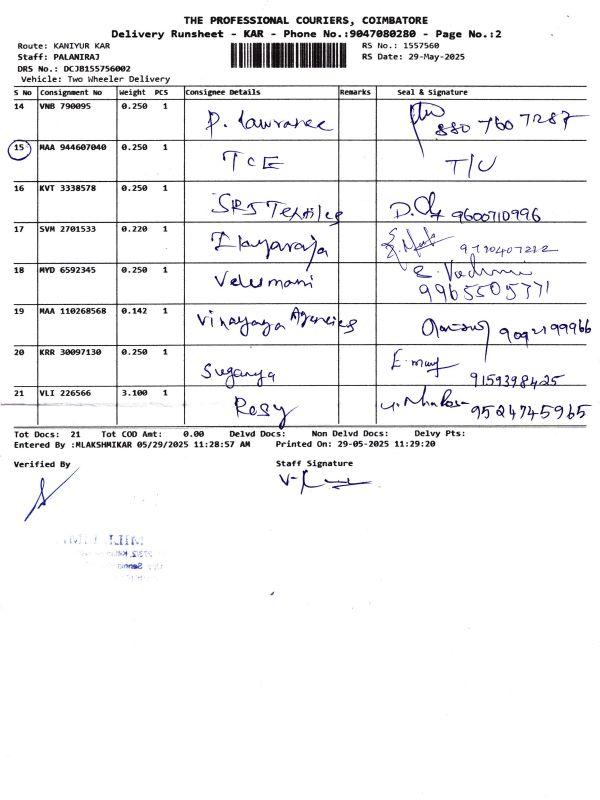 THE PROFESSIONAL COURIERS, COIMBATORE
Delivery Runsheet - KAR - Phone No.:9047080280 - Page No.:2
Route: KANIYUR KAR RS No.: 1557560
Staff: PALANIRAJ RS Date: 29-May-2025
DRS No.: DCJB155756002
Vehicle: Two Wheeler Delivery
S No Consignment No Weight PCS Consignee Details Remarks Seal & signature
14 VNB 790095 0.250 1 P. Lawrance 880 760 7287
15 MAA 944607040 0.250 1 TCE T/C
16 KVT 3338578 0.250 1 SRJ Textiles 9600710996
17 SVM 2701533 0.220 1 Ilayaraja
18 MYD 6592345 0.250 1 Velumani 9965505771
19 MAA 110268568 0.142 1 Vinayaga Agencies 9092199966
20 KRR 30097130 0.250 1 Suganya 9159398425
21 VLI 226566 3.100 1 Rosy 9524745965
Tot Docs: 21 Tot COD Amt: 0.00 Delvd Docs: Non Delvd Docs: Delvy Pts:
Entered By :MLAKSHMIKAR 05/29/2025 11:28:57 AM Printed On: 29-05-2025 11:29:20
Verified By Staff Signature